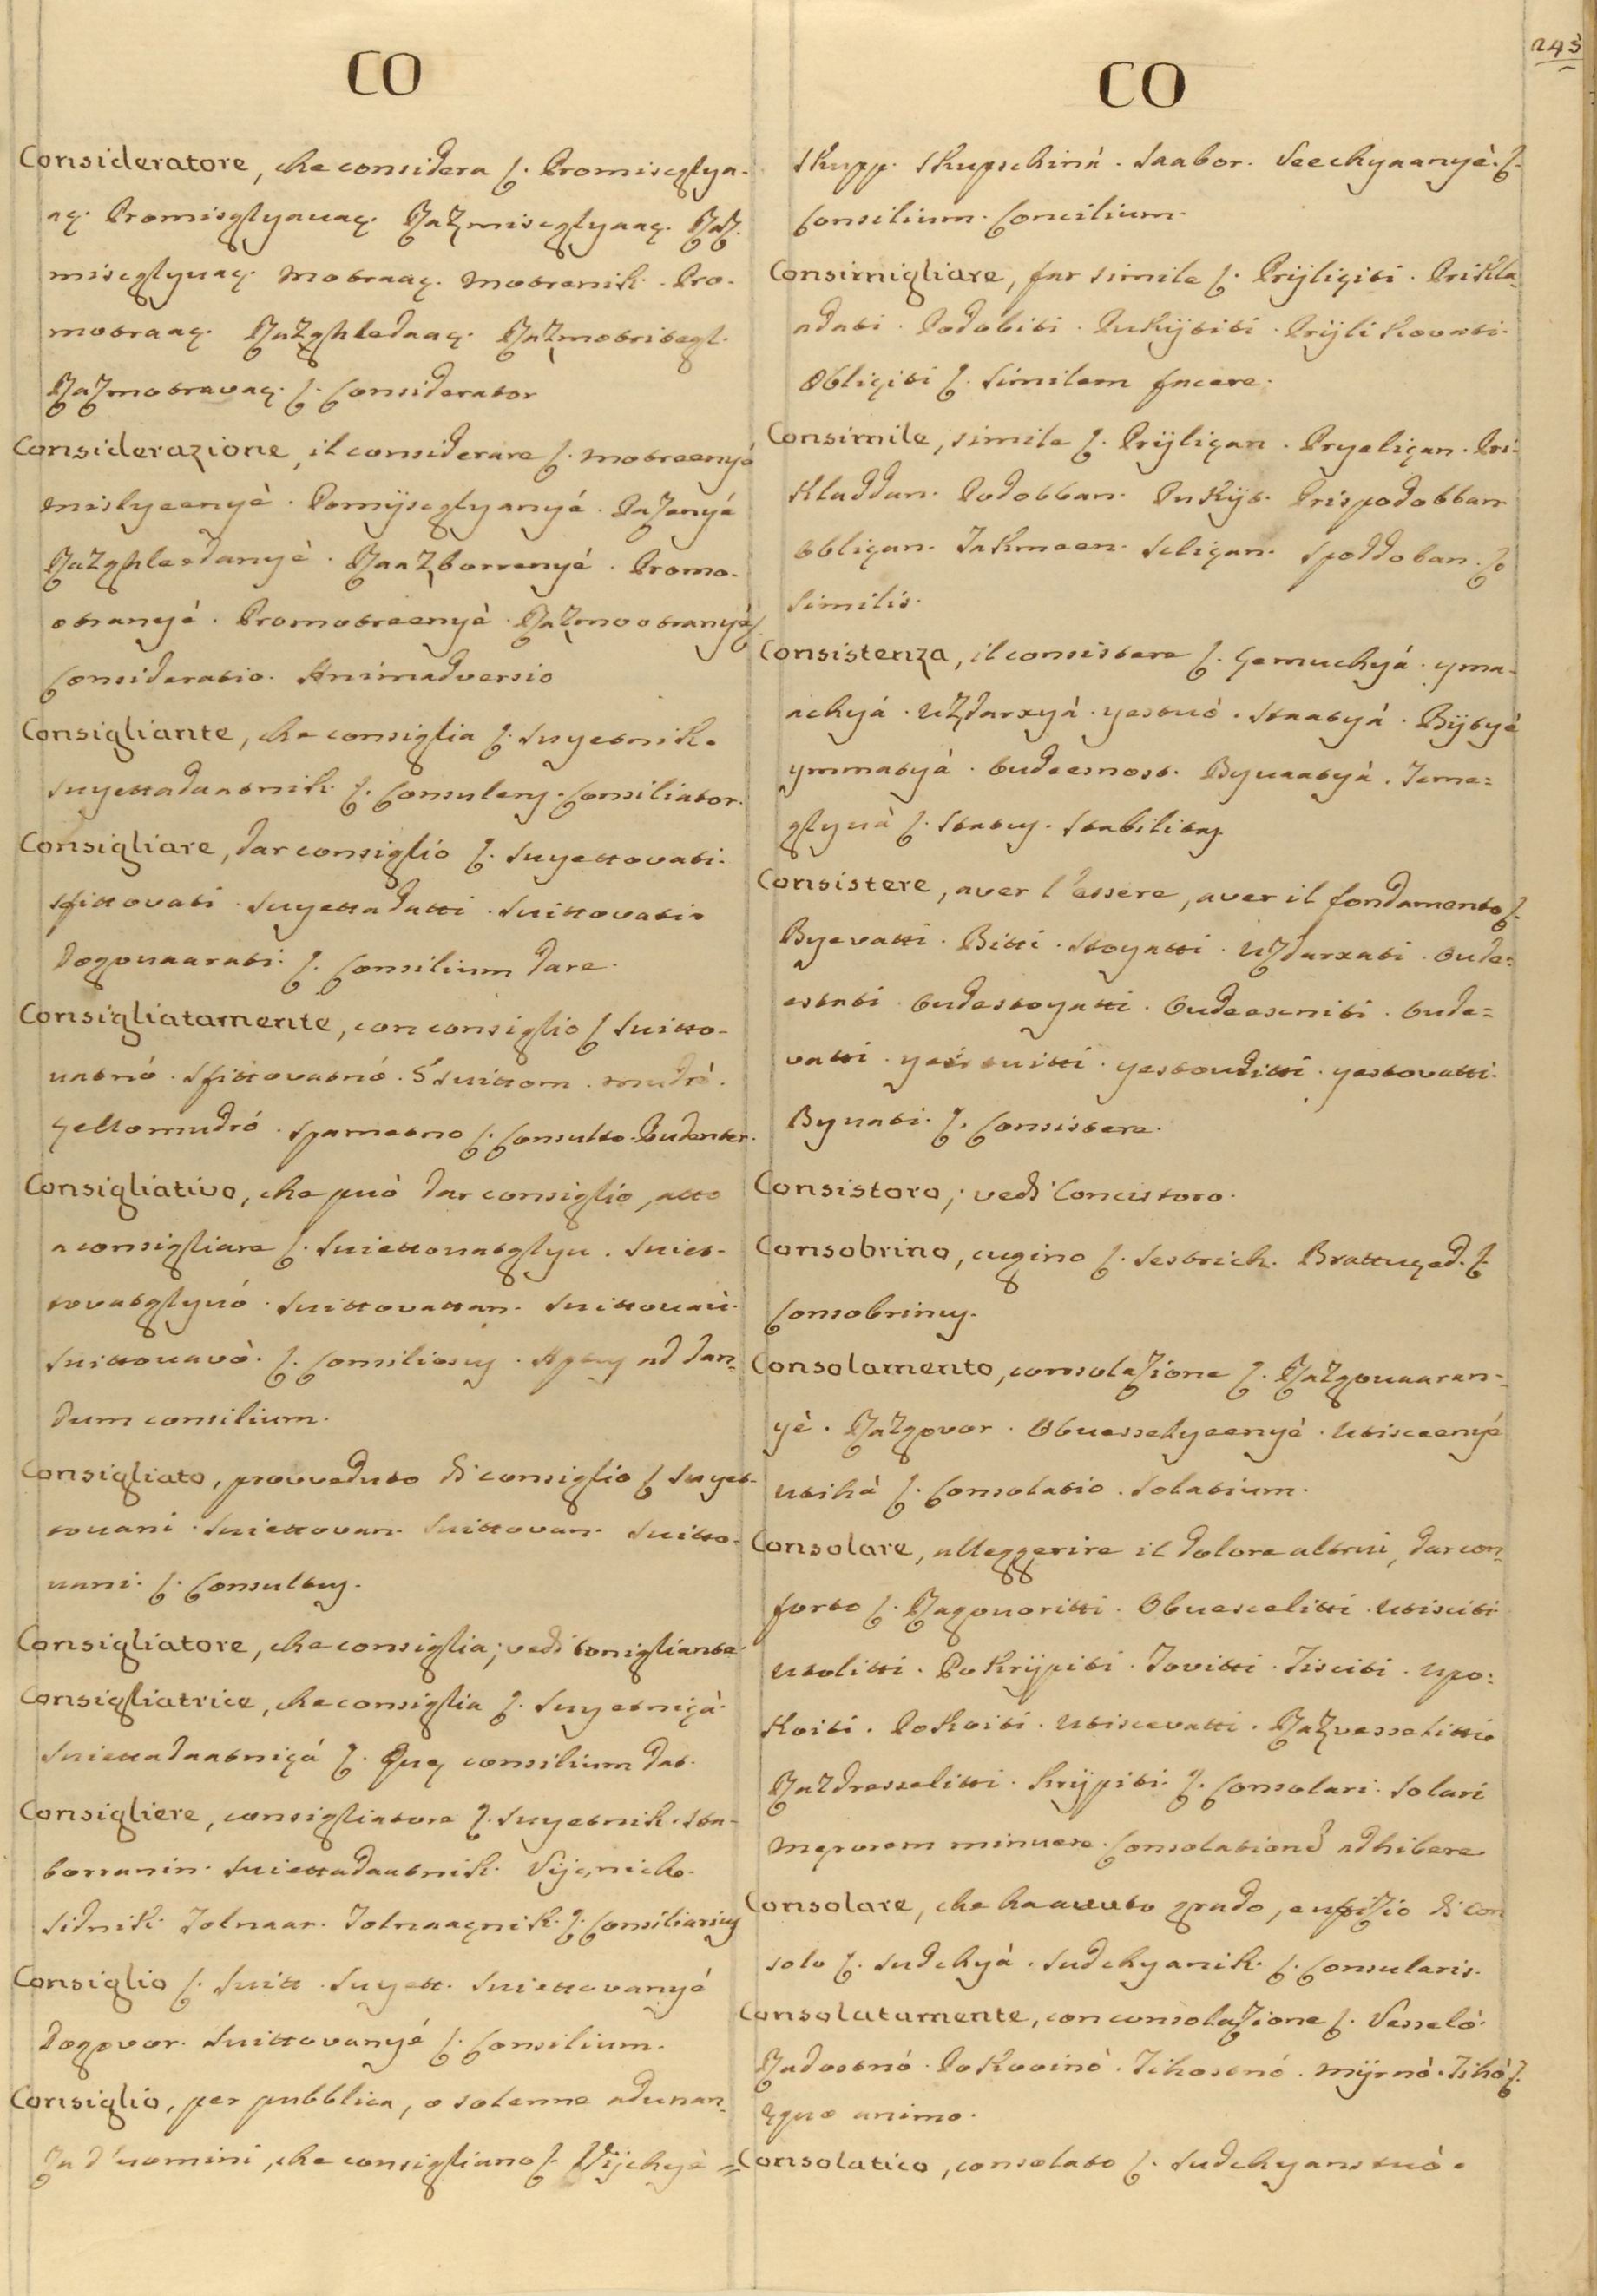 245
CO
Consideratore, che considera ſ. Promiscglya-
aç. Promisglyauaç. Razmiscglyaaç. Raz-
miscglyuaç. Motraaç. Motrenik. Pro-
motraaç. Razghledaaç. Razmotritegl.
Razmotravaç. ſ. Considerator
Considerazione, il considerare ſ. Motreenyé
Mislyeenyè. Pomÿscglyanyé. Pazenyé
Razghleedanyè. Raazborrenyé. Promo-
otranyé. Promotreenyè. Razmootranyé ſ.
Consideratio. Animadversio
Consigliante, che consiglia ſ. Suyetnik.
Suyettadaatnik ſ. Consulens. Consiliator.
Consigliare, dar consiglio ſ. Suyettovati.
Sfittovati. Suyettadatti. Suittovati.
Dogouaarati. ſ. Consilium dare.
Consigliatamente, con consiglio ſ. Suitto-
uatnó. Sfittovatnó. S'suittom. mudrò.
Çellomudró. Spametno ſ. Consulto. Prudenter.
Consigliativo, che può dar consiglio, atto
a consigliare ſ. Suiettouatglyu. Suiet-
tovatglyuó. Suittovattan. Suittouaú.
Suittouavò. ſ. Consiliosus. Aptus ad dan-
dum consilium.
Consigliato, provveduto di consiglio ſ. Suyet-
touani. Suiettovan. Suittovan. Suitto-
uani. ſ. Consultus.
Consigliatore, che consiglia; vedi Consigliante.
Consigliatrice, che consiglia ſ. Suyetniçà.
Suiettadaatniçá ſ. Quę consilium dat.
Consigliere, consigliatore ſ. Suyetnik. Sta-
borranin. Suiettadaatnik. Vijęnick.
Sidnik. Tolnaar. Tolnaaçnik. ſ. Consiliarius
Consiglio ſ. Suitt. Suyett. Suiettovanyé
Dogovor. Suittovanyé ſ. Consilium.
Consiglio, per pubblica, o solenne adunan-
za d'uomini, che consigliano ſ. Vijchyè =
CO
Skupp. Skupschinà. Saabor. Seechyaanyè. ſ.
Consilium. Concilium.
Consimigliare, far simile ſ. Prÿliçiti. Prikla-
adati. Podobiti. Pukÿtiti. Prÿlikovati.
Obliçiti ſ. Similem facere.
Consimile, simile ſ. Prÿliçan. Pryeliçan. Pri-
kladdan. Podobban. Pukÿt. Prispodobban
Obliçan. Jakmeen. Sliçan. Spoddoban. ſ.
Similis.
Consistenza, il consistere ſ. Yemuchyá. yma-
achyá. Uzdarxyá. yestuó. Staatyá. Bÿtyé
ymmatyá. Budeesnost. Byuaatyá. Teme=
glyuà ſ. Status. Stabilitas
Consistere, aver l'essere, aver il fondamento ſ.
Byevatti. Bitti. Stoyatti. Uzdarxati. Bude=
estati. Budestoyatti. Budeesniti. Bude=
vatti. yestuitti. yestouditti. yestovatti.
Byuati. ſ. Consistere.
Consistoro; vedi Concistoro.
Consobrino, cugino ſ. Sestrich. Brattuçed. ſ.
Consobrinus.
Consolamento, consolazione ſ. Razgouaaran-
yè. Razgovor. Obuesselyeenyè. Utisceenyé
Utihà ſ. Consolatio. Solatium.
Consolare, alleggerire il dolore altrui, dar con-
forto ſ. Ragouoritti. Obuescelitti. Utisciti
Utolitti. Pokrÿpiti. Tovitti. Tisciti. Upo=
koiti. Pokoiti. Utiscevatti. Razvesselitti.
Razdresselitti. Krÿpiti. ſ. Consolari. Solari
Męrorem minuere. Consolationē adhibere
Consolare, che ha avuto grado, e uffizio di con
solo ſ. Sudchyà. Sudchyanik. ſ. Consularis.
Consolatamente, con consolazione ſ. Vesselò.
Radostnó. Pokooinò. Tihostnó. Mÿrnò. Tihò ſ.
Ęquo animo.
Consolatico, consolato ſ. Sudchyanstuò.